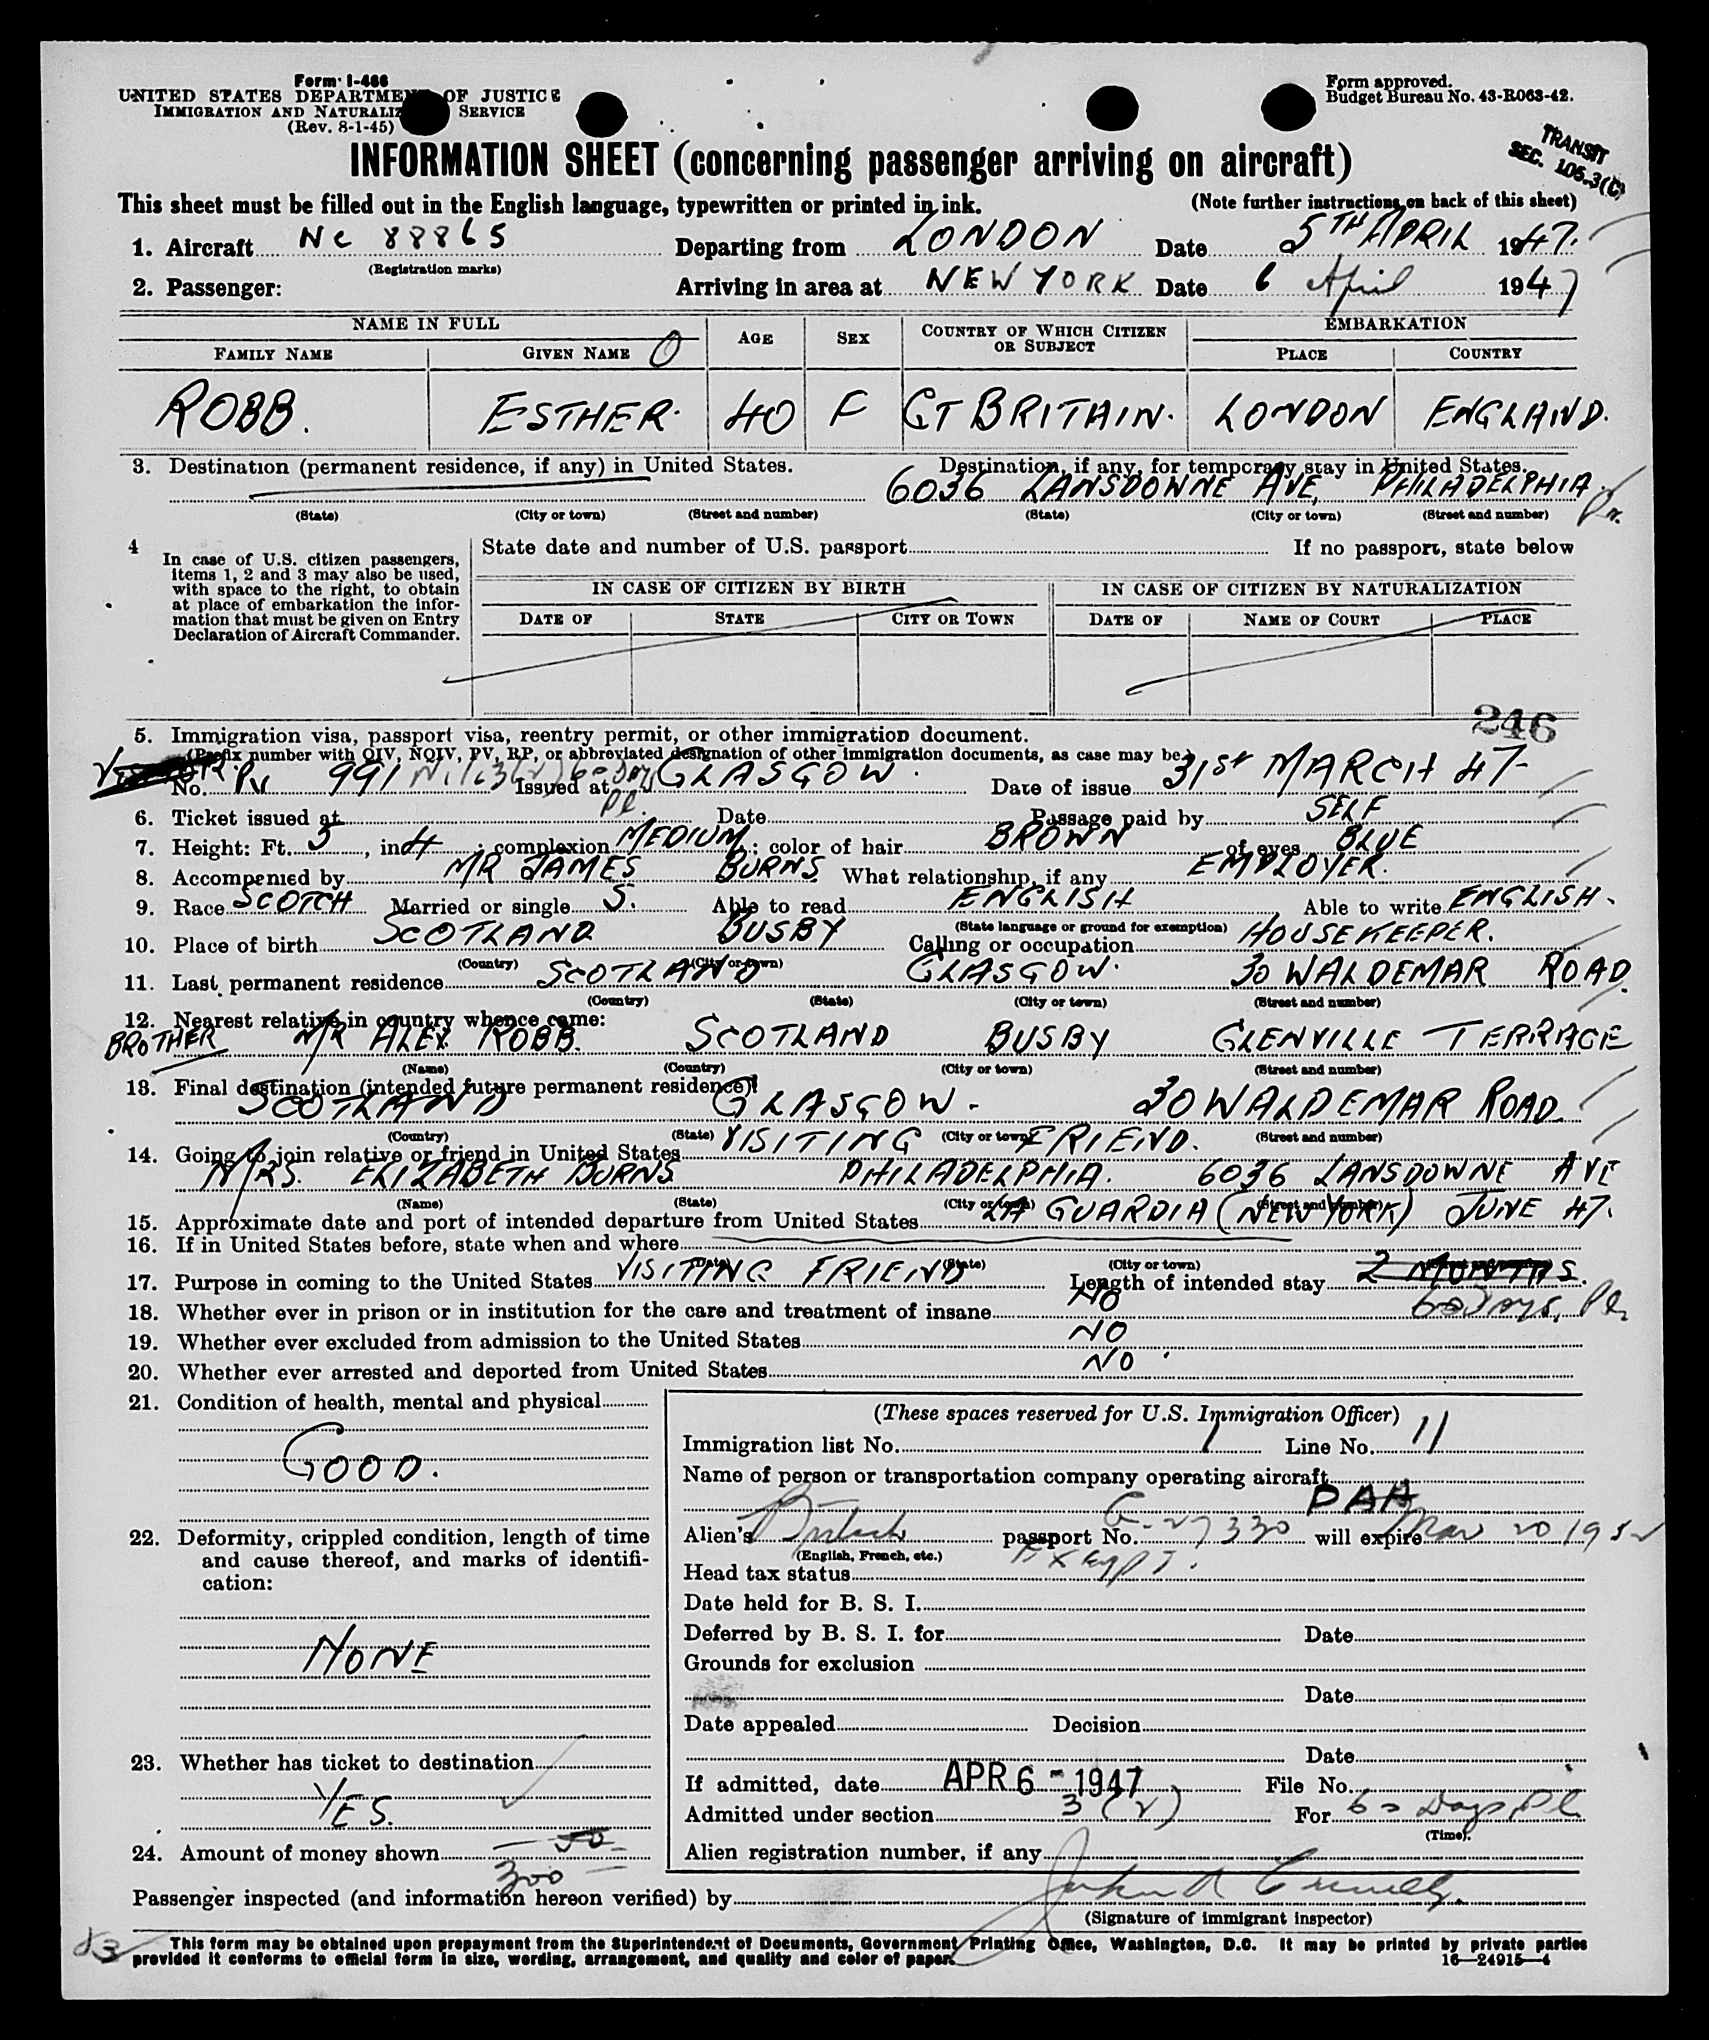 Form I-466
UNITED STATES DEPARTMENT OF JUSTICE
IMMIGRATION AND NATURALIZ SERVICE
(Rev. 8-1-45)
Form approved.
Budget Bureau No. 43-R063-42.
TRANSIT
SEC. 105.3(C)
INFORMATION SHEET (concerning passenger arriving on aircraft)
This sheet must be filled out in the English language, typewritten or printed in ink. (Note further instructions on back of this sheet)
1. Aircraft NC 88865 Departing from LONDON Date 5TH APRIL 1947.
(Registration marks)
2. Passenger: Arriving in area at NEW YORK Date 6 April 1947
NAME IN FULL AGE SEX COUNTRY OF WHICH CITIZEN OR SUBJECT EMBARKATION
FAMILY NAME GIVEN NAME O PLACE COUNTRY
ROBB. ESTHER. 40 F GT BRITAIN. LONDON ENGLAND.
3. Destination (permanent residence, if any) in United States. Destination, if any, for temporary stay in United States.
6036 LANSDOWNE AVE, PHILADELPHIA. Pa.
(State) (City or town) (Street and number) (State) (City or town) (Street and number)
4 In case of U.S. citizen passengers, items 1, 2 and 3 may also be used, with space to the right, to obtain at place of embarkation the information that must be given on Entry Declaration of Aircraft Commander.
State date and number of U.S. passport If no passport, state below
IN CASE OF CITIZEN BY BIRTH IN CASE OF CITIZEN BY NATURALIZATION
DATE OF STATE CITY OR TOWN DATE OF NAME OF COURT PLACE
246
5. Immigration visa, passport visa, reentry permit, or other immigration document.
(Prefix number with QIV, NQIV, PV, RP, or abbreviated designation of other immigration documents, as case may be.)
No. PV 991 Issued at GLASGOW. Date of issue 31st MARCH 47
6. Ticket issued at Date Passage paid by SELF
7. Height: Ft. 5, in. 4; complexion MEDIUM; color of hair BROWN of eyes BLUE
8. Accompanied by MR JAMES BURNS What relationship, if any EMPLOYER.
9. Race SCOTCH Married or single S. Able to read ENGLISH Able to write ENGLISH.
(State language or ground for exemption)
10. Place of birth SCOTLAND BUSBY Calling or occupation HOUSEKEEPER.
(Country) (City or town)
11. Last permanent residence SCOTLAND GLASGOW. 30 WALDEMAR ROAD.
(Country) (State) (City or town) (Street and number)
12. Nearest relative in country whence came:
BROTHER MR ALEX ROBB. SCOTLAND BUSBY GLENVILLE TERRACE
(Name) (Country) (City or town) (Street and number)
13. Final destination (intended future permanent residence)
SCOTLAND GLASGOW. 30 WALDEMAR ROAD
(Country) (State) (City or town) (Street and number)
14. Going to join relative or friend in United States VISITING FRIEND.
MRS. ELIZABETH BURNS PHILADELPHIA. 6036 LANSDOWNE AVE
(Name) (State) (City or town) (Street and number)
15. Approximate date and port of intended departure from United States LA GUARDIA (NEW YORK) JUNE 47.
16. If in United States before, state when and where
(Date) (State) (City or town) (Street and number)
17. Purpose in coming to the United States VISITING FRIEND Length of intended stay 2 MONTHS.
60 Days, Pl
18. Whether ever in prison or in institution for the care and treatment of insane NO
19. Whether ever excluded from admission to the United States NO
20. Whether ever arrested and deported from United States NO
21. Condition of health, mental and physical
GOOD.
22. Deformity, crippled condition, length of time and cause thereof, and marks of identification:
NONE
23. Whether has ticket to destination
YES.
24. Amount of money shown 50
300
(These spaces reserved for U.S. Immigration Officer)
Immigration list No. 1 Line No. 11
Name of person or transportation company operating aircraft
PAA
Alien's British passport No. C-27330 will expire Mar 20 1952
(English, French, etc.)
Head tax status Exempt.
Date held for B. S. I.
Deferred by B. S. I. for Date
Grounds for exclusion
Date
Date appealed Decision
Date
If admitted, date APR 6 - 1947 File No.
Admitted under section 3 (2) For 60 Days, Pl
(Time)
Alien registration number, if any
Passenger inspected (and information hereon verified) by
(Signature of immigrant inspector)
This form may be obtained upon prepayment from the Superintendent of Documents, Government Printing Office, Washington, D.C. It may be printed by private parties
provided it conforms to official form in size, wording, arrangement, and quality and color of paper. 16—24915-4